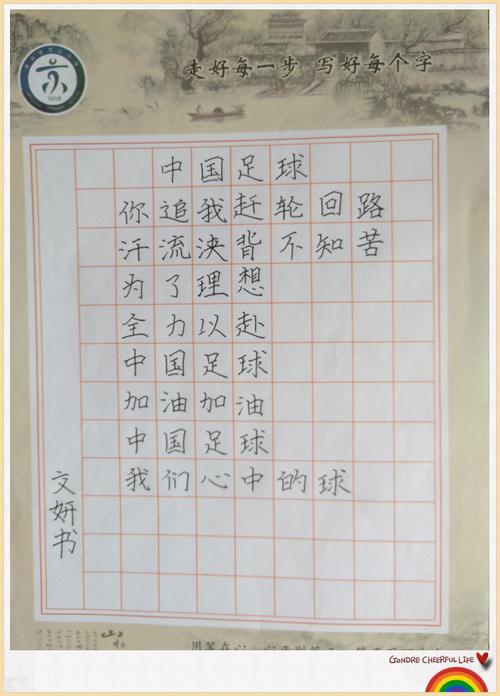 走好每一步 写好每个字
中国足球
你追我赶轮回路
汗流浃背不知苦
为了理想
全力以赴
中国足球
加油加油
中国足球
我们心中的球
文妍书
GONDRE CHEERFUL LIFE